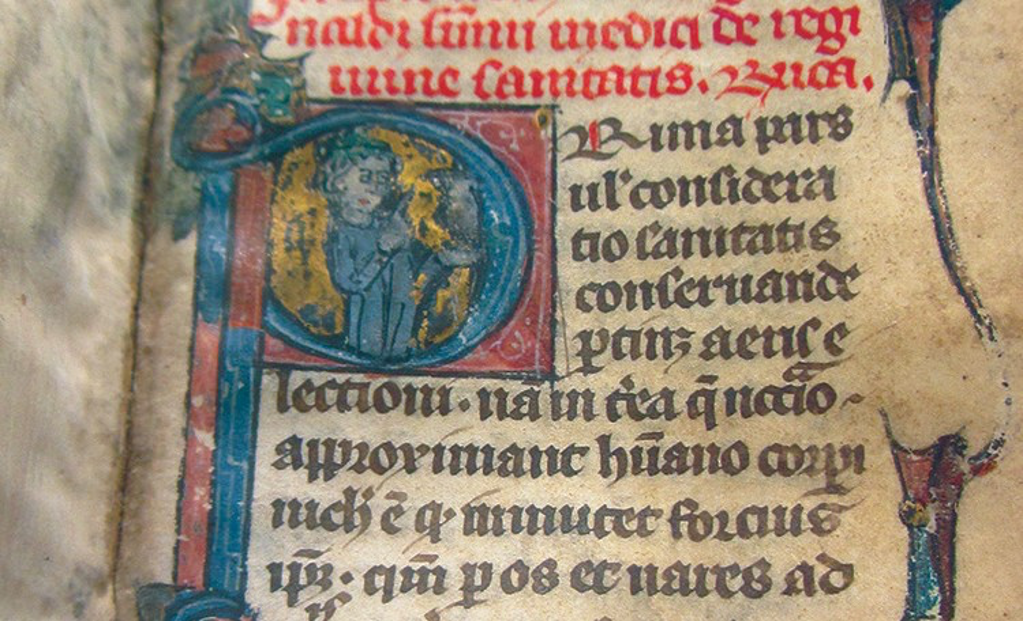 naldi sūmi medici de regi
mine sanitatis. Ruca.
Prima pars
ul' considera
tio sanitatis
conseruande
ptinꝫ aeris e
lectioni. nā in t'ea q̄ nccīo
approximant hūano corpi
nich' ē qͥ inmutet forcius
ipꝫ. qm̄ p os et nares ad